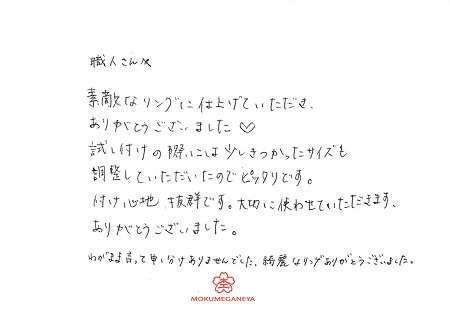 職人さんへ
素敵なリングに仕上げていただき、
ありがとうございました♡
試し付けの際には少しきつかったサイズも
調整していただいたのでピッタリです。
付け心地 抜群です。大切に使わせていただきます、
ありがとうございました。
わがまま言って申し分けありませんでした、綺麗なリングありがとうございました。
杢
MOKUMEGANEYA